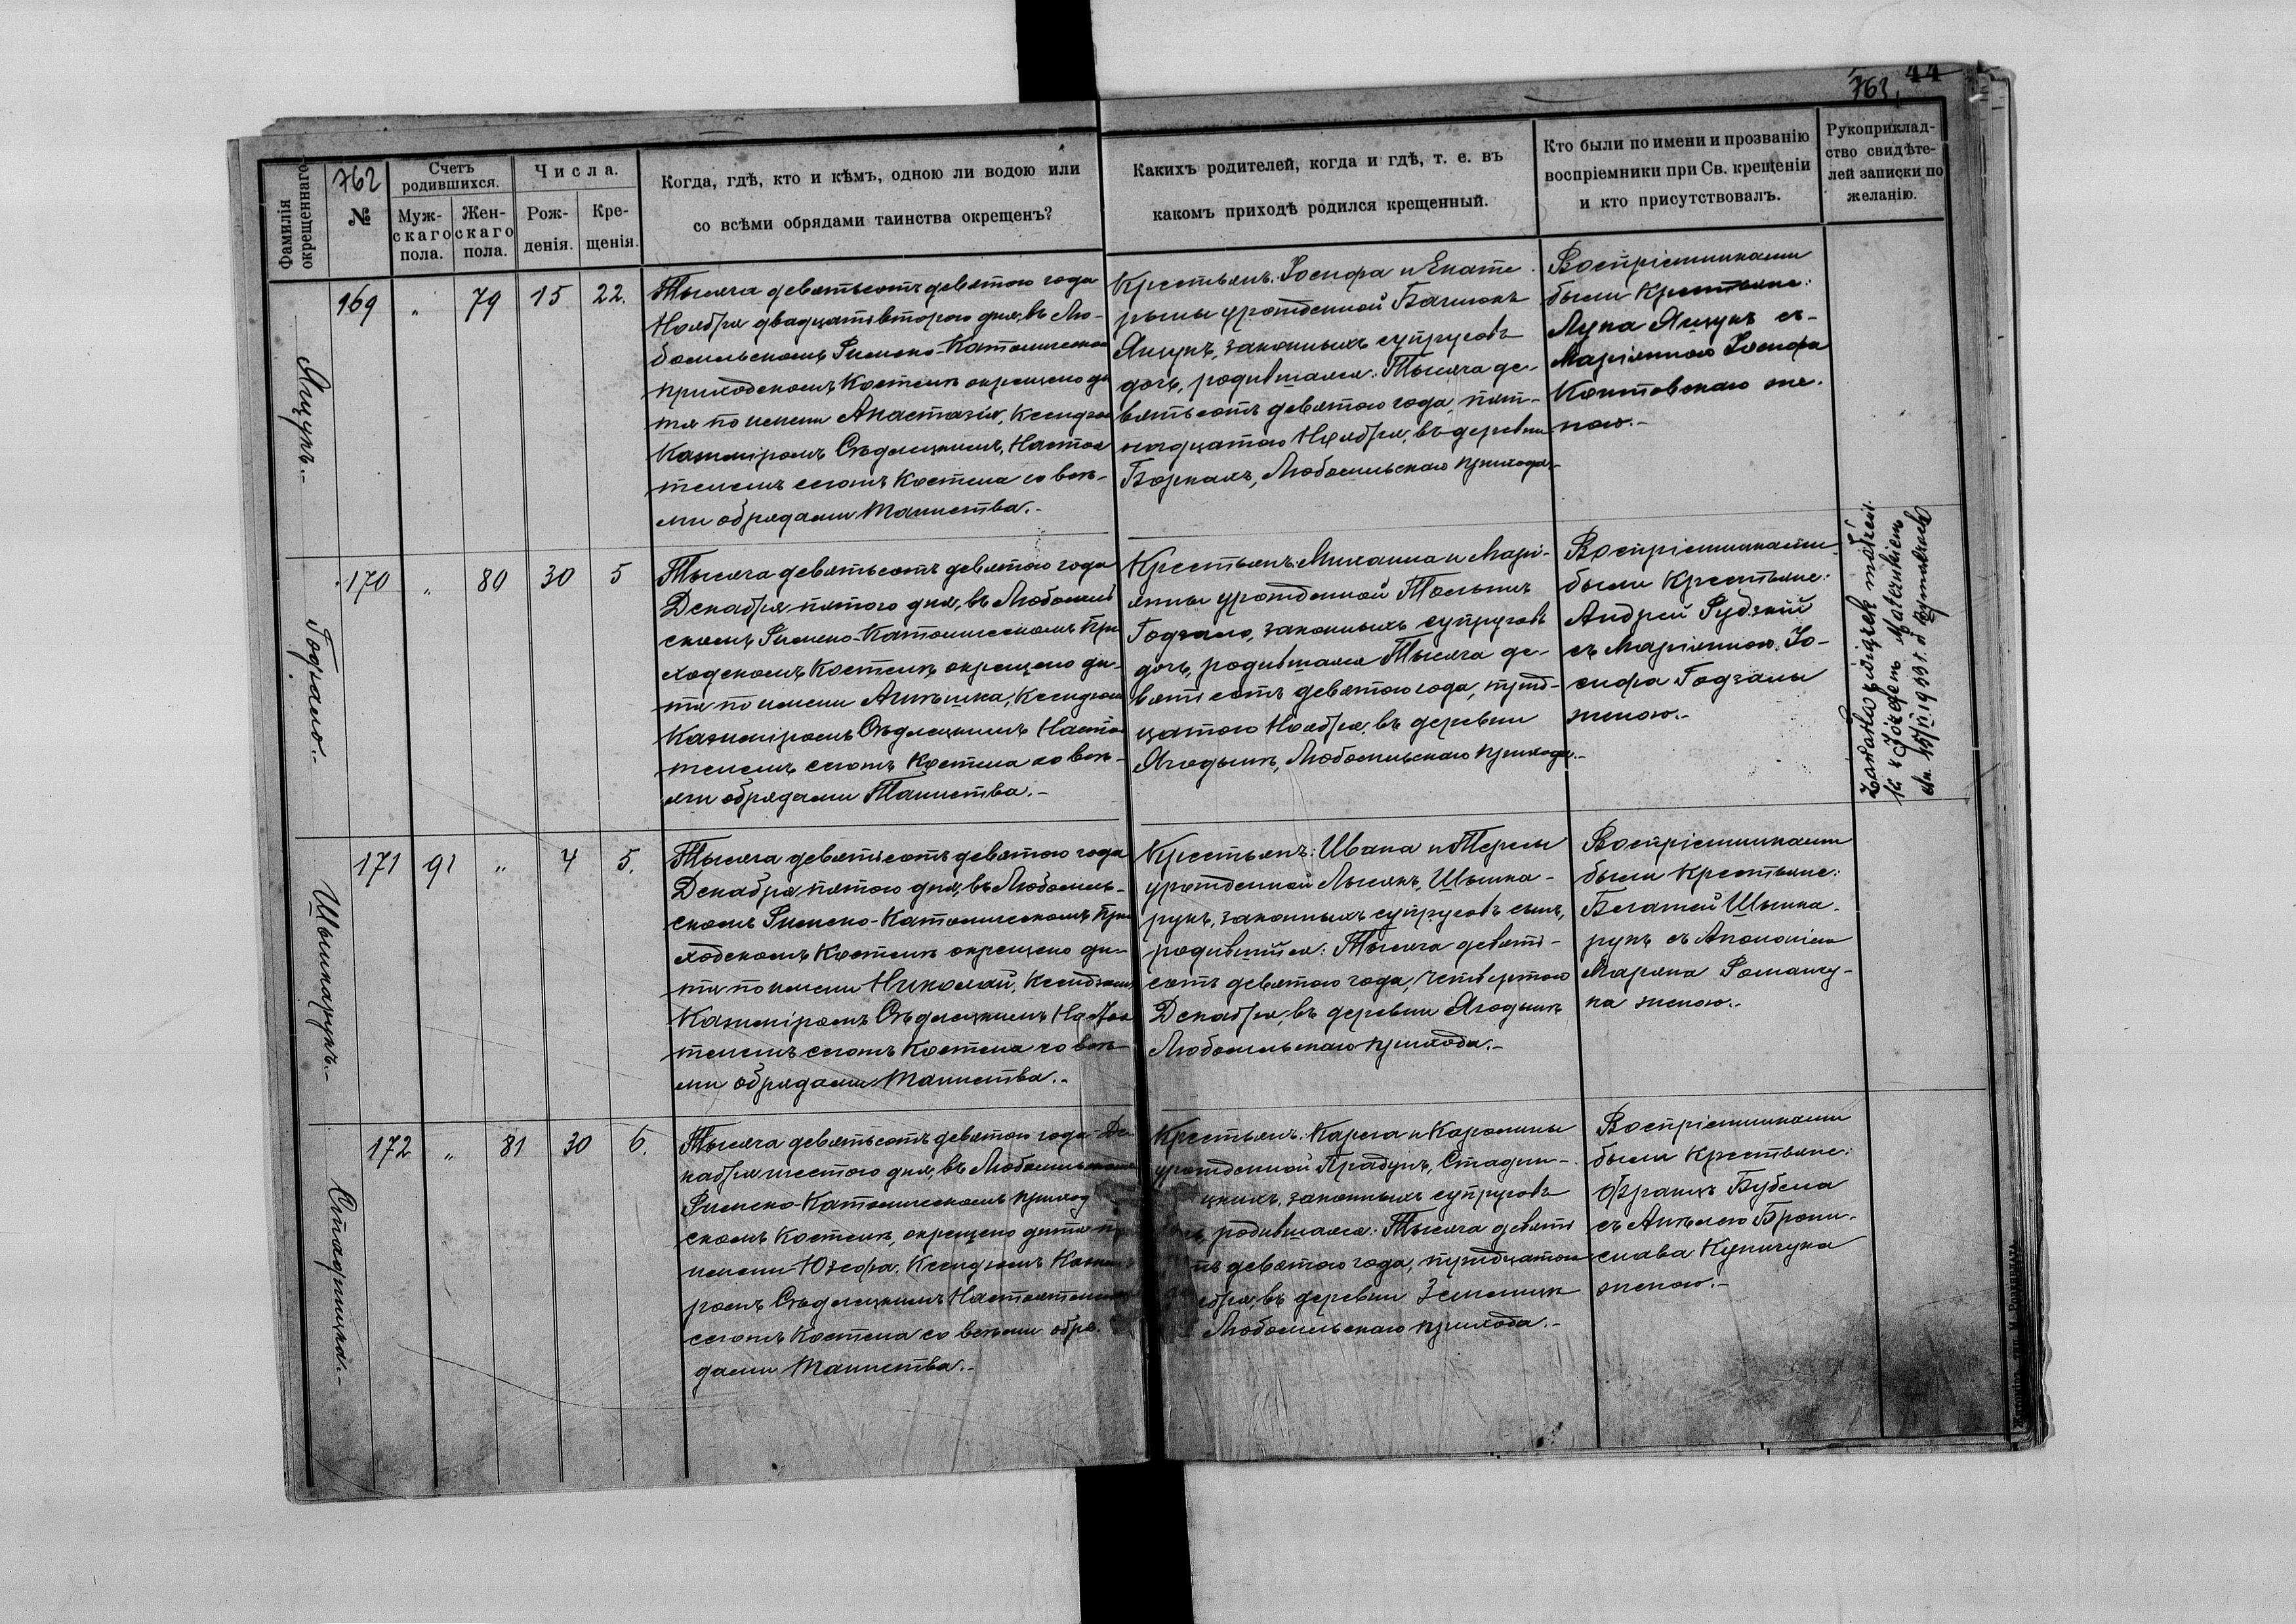 762
763.
44
Фамилія окрещеннаго
№
Счетъ родившихся.
Муж-скаго пола.
Жен-скаго пола.
Числа.
Рож-денія.
Кре-щенія.
Когда, гдѣ, кто и кѣмъ, одною ли водою или
со всѣми обрядами таинства окрещенъ?
Какихъ родителей, когда и гдѣ, т. е. въ
какомъ приходѣ родился крещенный.
Кто были по имени и прозванію
воспріемники при Св. крещеніи
и кто присутствовалъ.
Рукоприклад-
ство свидѣте-
лей записки по
желанію.
Яцукъ.-
169 " 79 15 22.
Тысяча девятьсотъ девятого года
Ноября двадцать второго дня, въ Лю-
бомльскомъ Римско-Католическомъ
приходскомъ Костелѣ окрещено ди
тя по имени Анастазія, Ксендзомъ
Казиміромъ Сѣдлецкимъ, Настоя
телемъ сегожъ Костела со всѣ-
ми обрядами Таинства.-
Крестьянъ: Іосифа и Екате-
рины урожденной
Яцукъ, законныхъ супруговъ
дочь, родившаяся: Тысяча де-
вятьсотъ девятого года, пят-
надцатого Ноября, въ деревни
Боркахъ, Любомльскаго прихода.-
Воспріемниками
были Крестьяне:
Лука Яцукъ съ
Маріянною Іосифа
же-
ною.-
Годзало.-
170 " 80 30 5
Тысяча девятьсотъ девятого года
Декабря пятого дня, въ Любомль
скомъ Римско-Католическомъ При
ходскомъ Костелѣ окрещено ди-
тя по имени Агнѣшка, Ксендзомъ
Казиміромъ Сѣдлецкимъ Настоя
телемъ сегожъ Костела со всѣ-
ми обрядами Таинства.-
Крестьянъ: Михаила и Марі-
янны урожденной
Годзало, законныхъ супруговъ
дочь, родившаяся Тысяча де-
вятьсотъ девятого года, трид-
цатого Ноября, въ деревни
Ягодынѣ, Любомльскаго прихода.-
Воспріемниками
были Крестьяне:
Андрей Рудзкій
съ Маріянною Іо-
сифа Годзалы
женою.-
Zawarła związek małżeń.
Шышкарукъ.-
171 91 " 4 5.
Тысяча девятьсотъ девятого года
Декабря пятого дня, въ Любомль-
скомъ Римско-Католическомъ При
ходскомъ Костелѣ окрещено ди-
тя по имени Николай, Ксендзомъ
Казиміромъ Сѣдлецкимъ Настоя
телемъ сегожъ Костела со всѣ-
ми обрядами Таинства.-
Крестьянъ: Ивана и Терезы
урожденной Лысякъ, Шышка-
рукъ, законныхъ супруговъ сынъ,
родившійся: Тысяча девять-
сотъ девятого года, четвертого
Декабря, въ деревни Ягодынѣ
Любомльскаго прихода.-
Воспріемниками
были Крестьяне:
Шышка-
рукъ съ Аполоніею
Маряна Романчу-
ка женою.-
Стадницка.-
172 " 81 30 6.
Тысяча девятьсотъ девятого года Де-
кабря шестого дня, въ Любомльскомъ
Римско-Католическомъ приход
скомъ Костелѣ, окрещено дитя по
имени Юзефа, Ксендзомъ Казим
ромъ Сѣдлецкимъ Настоятелемъ
сегожъ Костела со всѣми обря-
дами Таинства.-
Крестьянъ: Карла и Каролины
урожденной Прадунъ, Стадни-
цкихъ, законныхъ супруговъ
родившаяся: Тысяча девять
девятого года, тридцатого
въ деревни Землицѣ
Любомльскаго прихода.-
Воспріемниками
были Крестьяне:
Францъ Бубела
съ Анѣлею Брони-
слава Купичука
женою.-